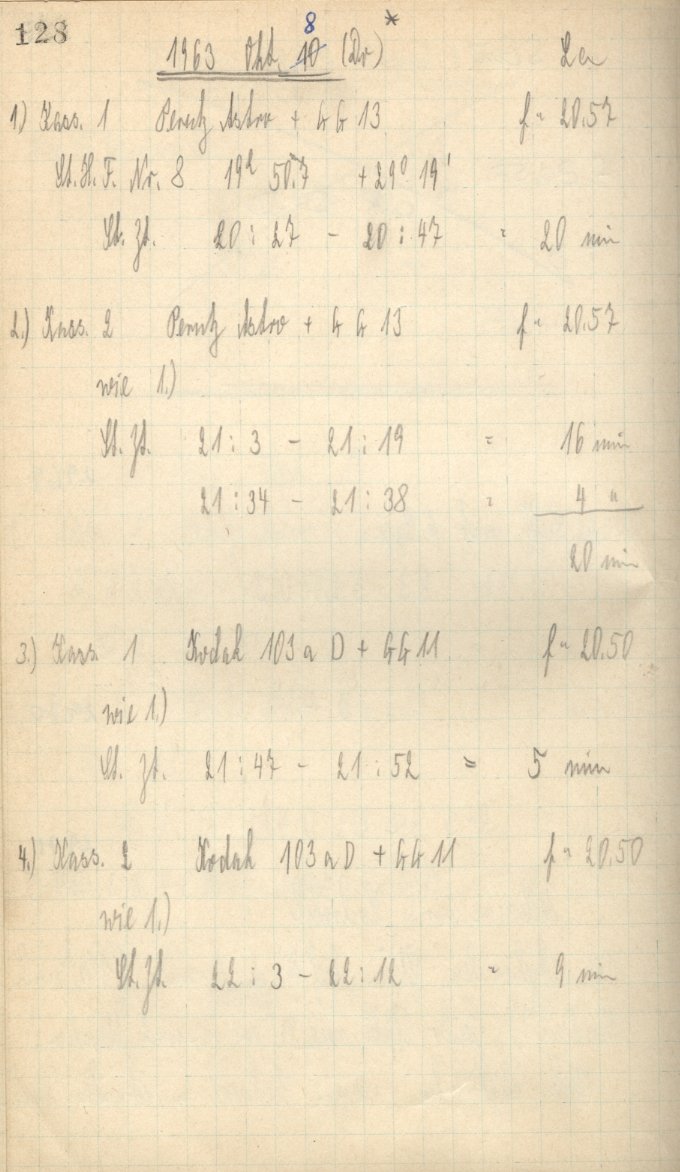 128
1963 Okt. 10 8 (Do) *
1) Kass. 1 Perutz Astro + GG 13 f = 20.57
St.H.F. Nr. 8 19h 50.m7 +29° 19'
St. Zt. 20 : 27 - 20 : 47 = 20 min
2.) Kass. 2 Perutz Astro + GG 13 f = 20.57
wie 1.)
St. Zt. 21 : 3 - 21 : 19 = 16 min
21 : 34 - 21 : 38 = 4 "
20 min
3.) Kass. 1 Kodak 103 a D + GG 11 f = 20.50
wie 1.)
St. Zt. 21 : 47 - 21 : 52 = 5 min
4.) Kass. 2 Kodak 103 a D + GG 11 f = 20.50
wie 1.)
St. Zt. 22 : 3 - 22 : 12 = 9 min